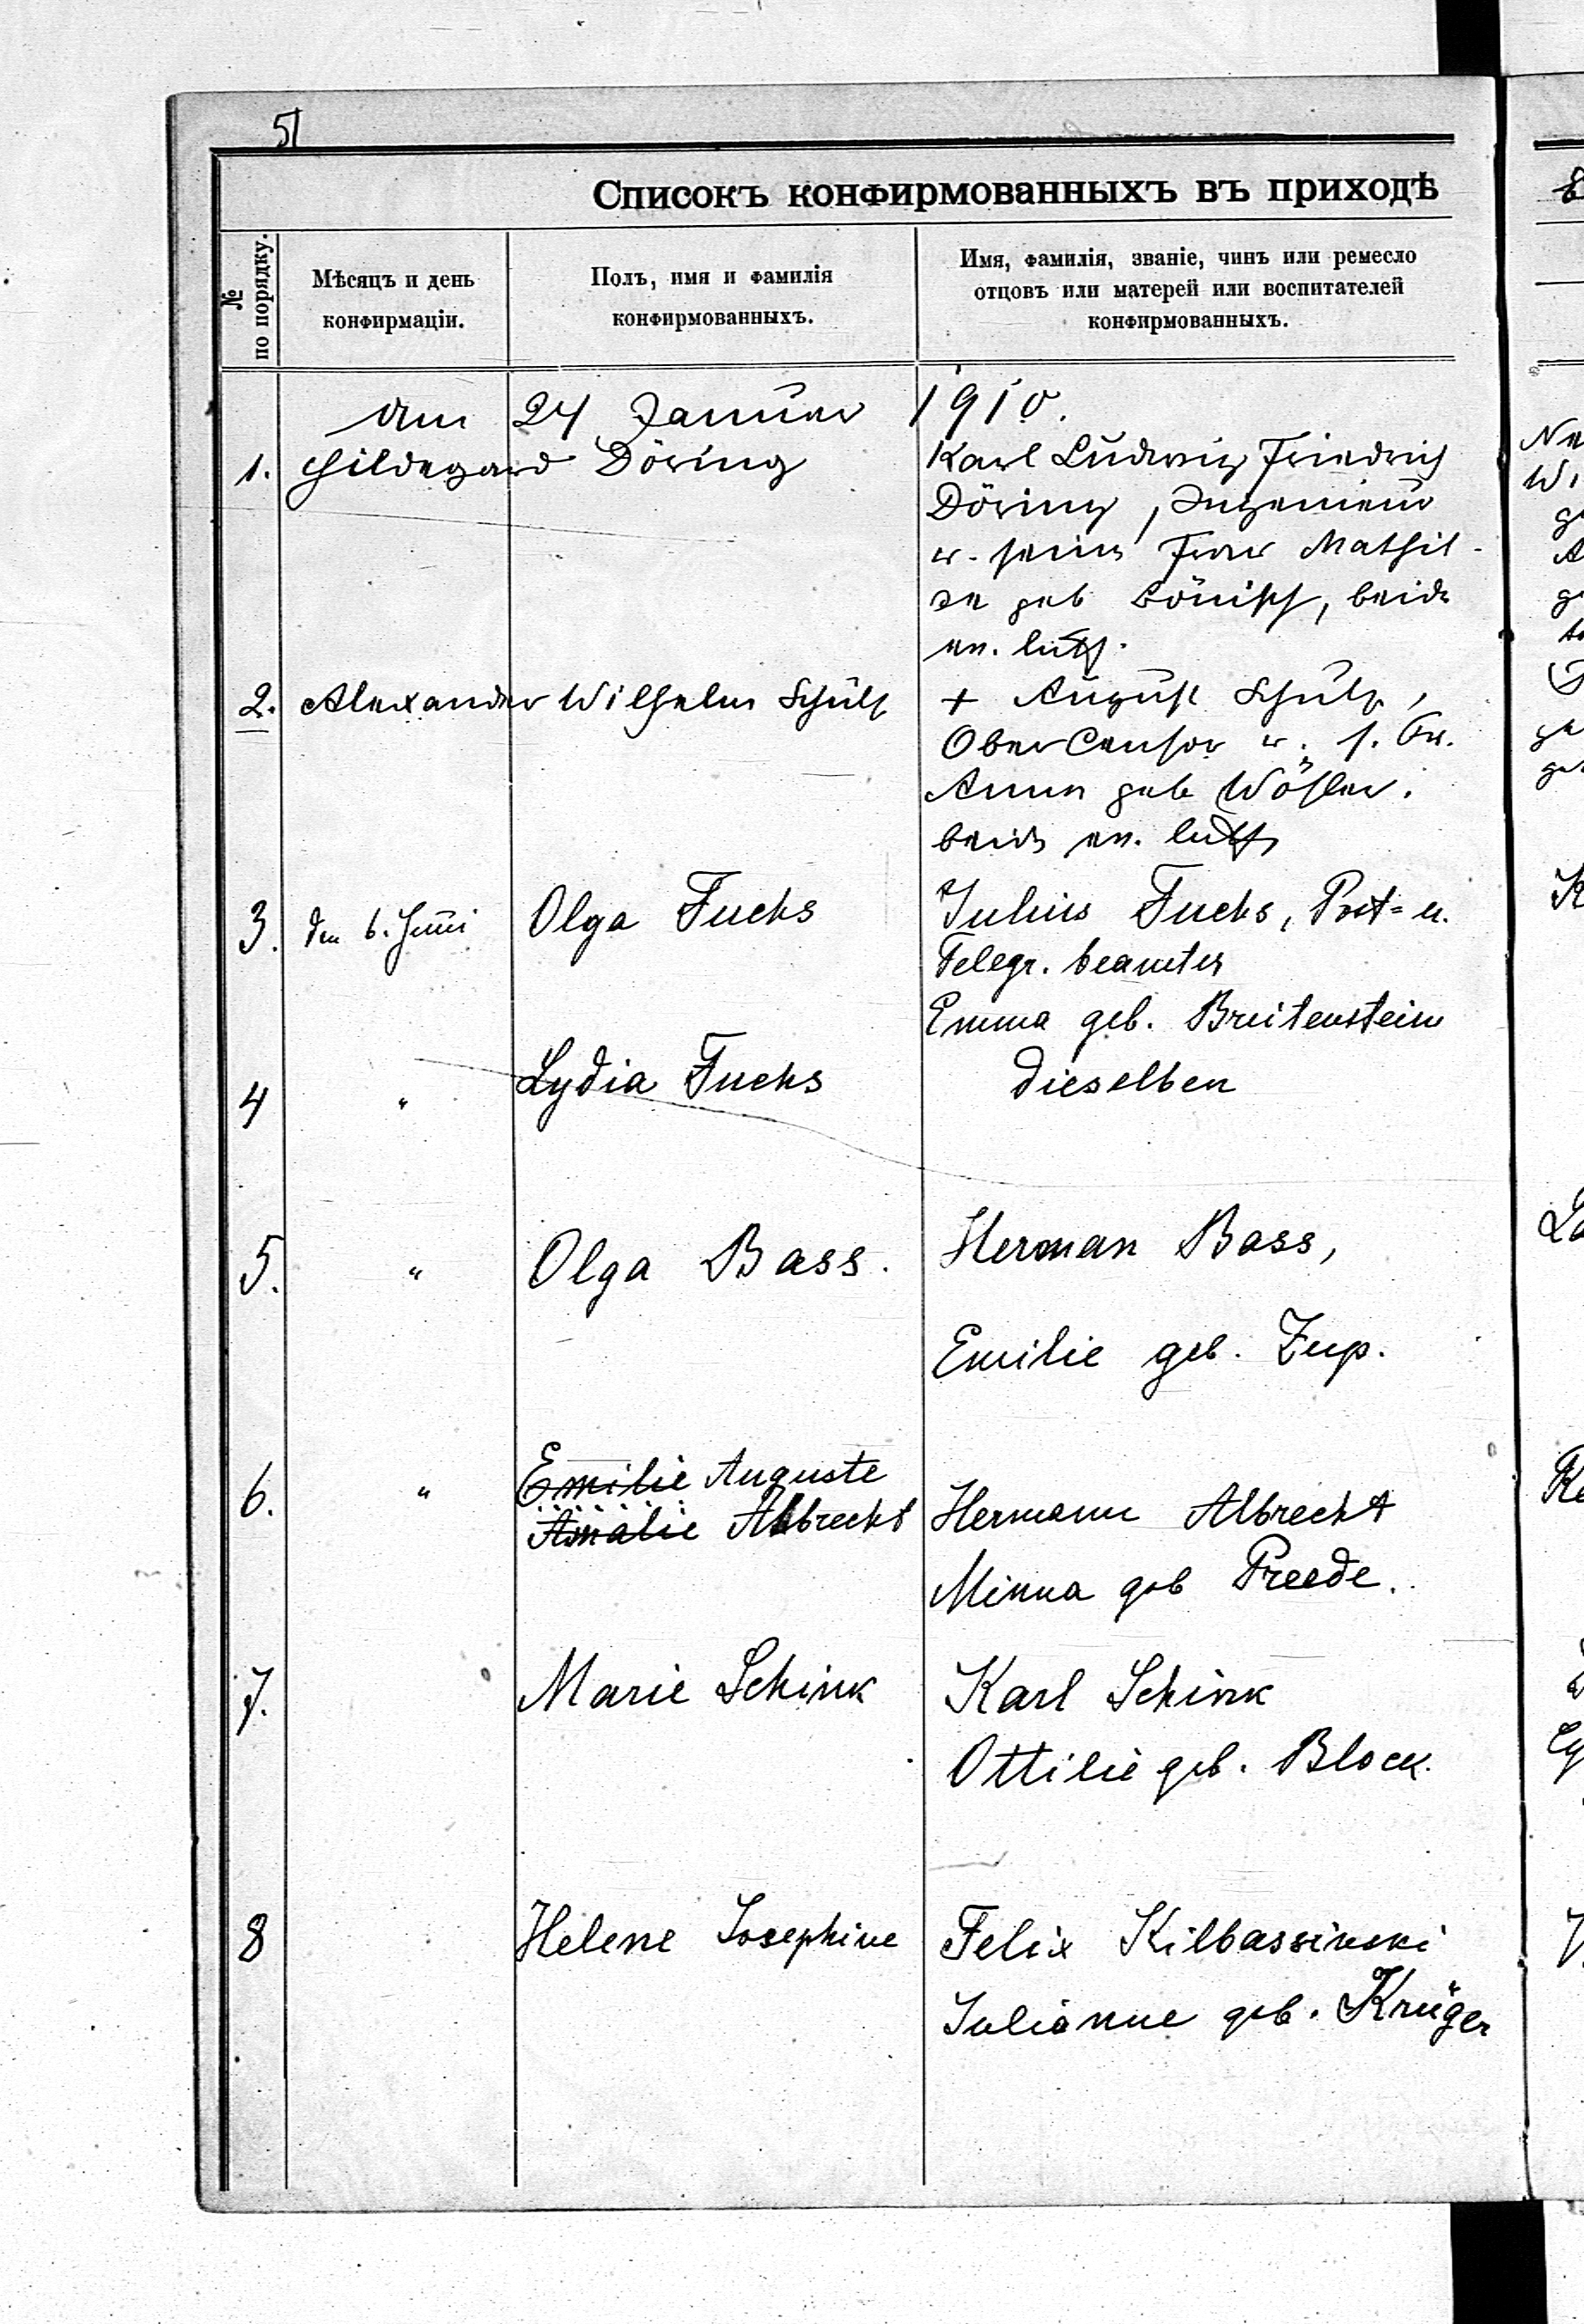 51
Списокъ конфирмованныхъ въ приходѣ
№ по порядку.
Мѣсяцъ и день
конфирмаціи.
Полъ, имя и фамилія
конфирмованныхъ.
Имя, фамилія, званіе, чинъ или ремесло
отцовъ или матерей или воспитателей
конфирмованныхъ.
Am 24 Januar 1910.
1. Hildegard Döring
Karl Ludwig Friedrich
Döring, Ingenieur
u. seine Frau Mathil-
de geb Bönisch, beide
ev. luth.
2. Alexander Wilhelm Schulz
+ August Schulz,
Ober Censor u. s. Fr.
Anna geb Wöhler.
beide ev. luth
3. den 6. Juni Olga Fuchs
Julius Fuchs, Post= u.
Telegr. beamter
Emma geb. Breitenstein
4 " Lydia Fuchs
dieselben
5. " Olga Bass.
Herman Bass,
Emilie geb. Zup.
6. " Emilie Auguste
Amalie Albrecht
Hermann Albrecht
Minna geb Preede.
7. Marie Schink
Karl Schink
Ottilie geb. Block.
8 Helene Josephine
Felix Kilbassinski
Julianne geb. Krüger